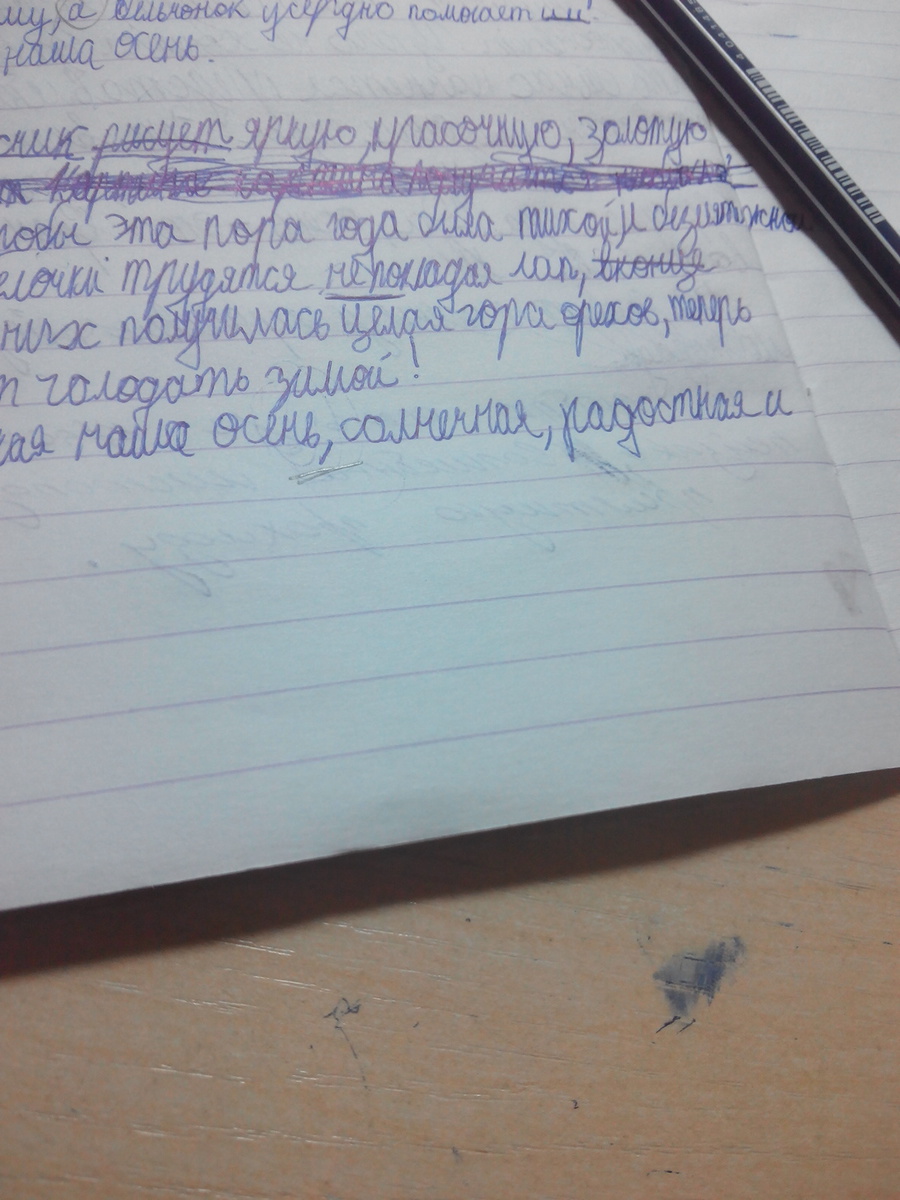 му, а бельчонок усердно помогает им!
наша осень.
сник рисует яркую, красочную, золотую
тобы эта пора года была тихой и безмятежной
елочки трудятся не покладая лап, вконце
них получилась целая гора орехов, теперь
т голодать зимой!
кая наша осень, солнечная, радостная и